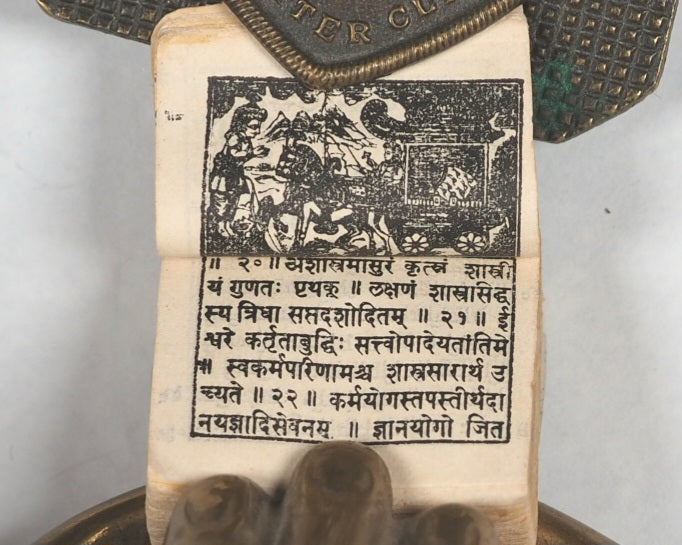 TER CLI
॥ २० ॥ अशास्त्रमासुरं कृत्स्नं शास्त्री
यं गुणतः पृथक् ॥ लक्षणं शास्त्रसिद्ध
स्य त्रिधा सप्तदशोदितम् ॥ २१ ॥ ई
श्वरे कर्तृताबुद्धिः सत्त्वोपादेयतांतिमे
॥ स्वकर्मपरिणामश्च शास्त्रसारार्थ उ
च्यते ॥ २२ ॥ कर्मयोगस्तपस्तीर्थदा
नयज्ञादिसेवनम् ॥ ज्ञानयोगो जित